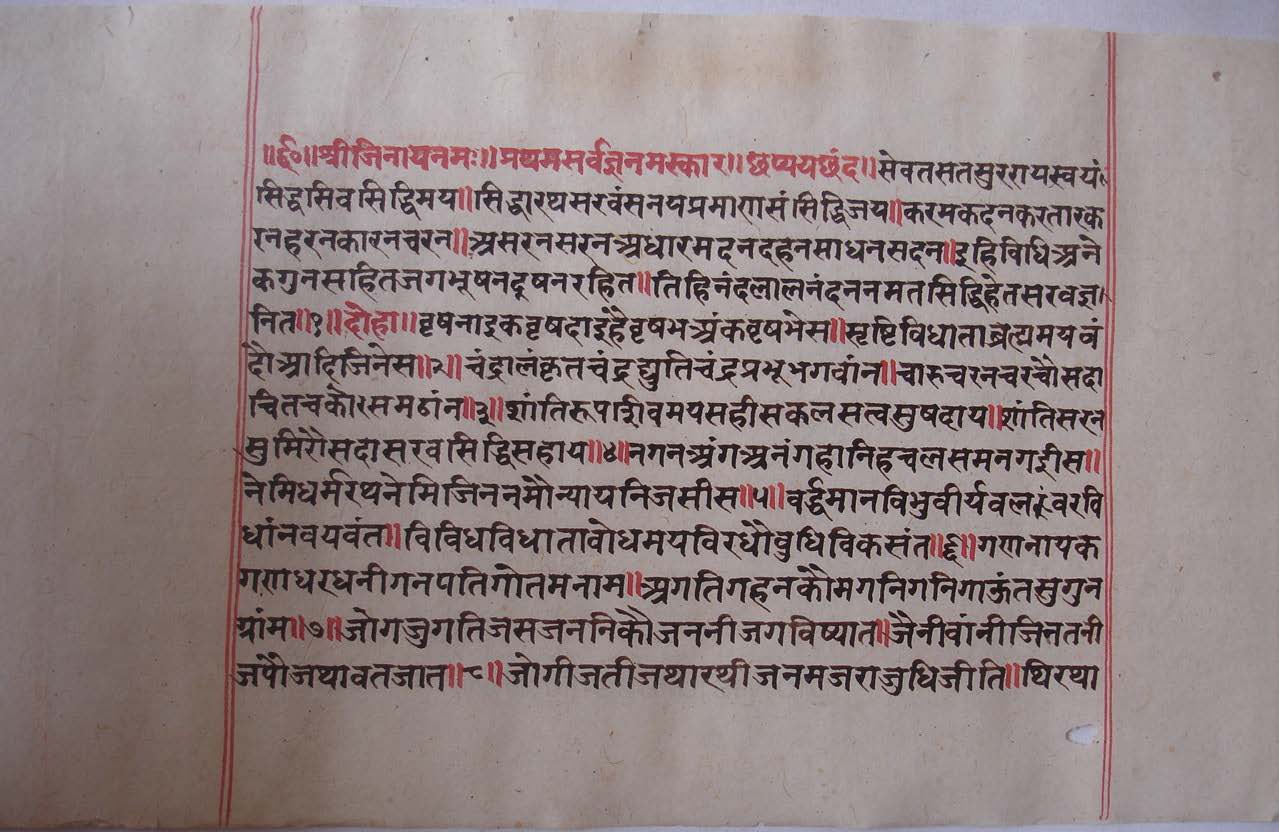 ॥र्द्०॥श्रीजिनायनमः॥प्रथमसर्वज्ञनमस्कार॥छप्पयछंद॥सेवतसतसुररायस्वयं
सिद्धसिवसिद्धिमय॥सिद्धारथसरवंसनयप्रमाणसंसिद्धिजय॥करमकदनकरतारक
रनहरनकारनचरन॥असरनसरनअधारमदनदहनसाधनसदन॥इहिविधिअने
कगुनसहितजगभूषनदूषनरहित॥तिहिनंदलालनंदननमतसिद्धिहेतसरवज्ञ
नित॥१॥दोहा॥वृषनाइकवृषदाइंहैवृषभअंकवृषभेस॥सृष्टिविधाताब्रह्ममयवं
दौआदिजिनेस॥२॥चंद्रालंकृतचंद्रद्युतिचंद्रप्रभूभगवांन॥चारुचरनचरचौसदा
चितचकोरसमठांन॥३॥शांतिरूपशिवमयसहीसकलसत्वसुषदाय॥शांतिसरन
सुमिरौसदासरवसिद्धिसहाय॥४॥नगनअंगअनंगहानिहचलसमनगईस॥
नेमिधर्मरथनेमिजिननमौन्यायनिजसीस॥५॥वर्द्धमानविभुवीर्यवलवरवि
धांनवयवंत॥विविधविधातावोधमयविरधौवुधिविकसंत॥६॥गणनायक
गणधरधनीगनपतिगोतमनाम॥अगतिगहनकौमगनिगनिगाऊंतसुगुन
ग्रांम॥७॥जोगजुगतिजसजननिकौजननीजगविष्यात॥जैनीवांनीजिनतनी
जपौजथावतजात॥८॥जोगीजतीजथारथीजनमजराजुधिजीति॥थिरथा